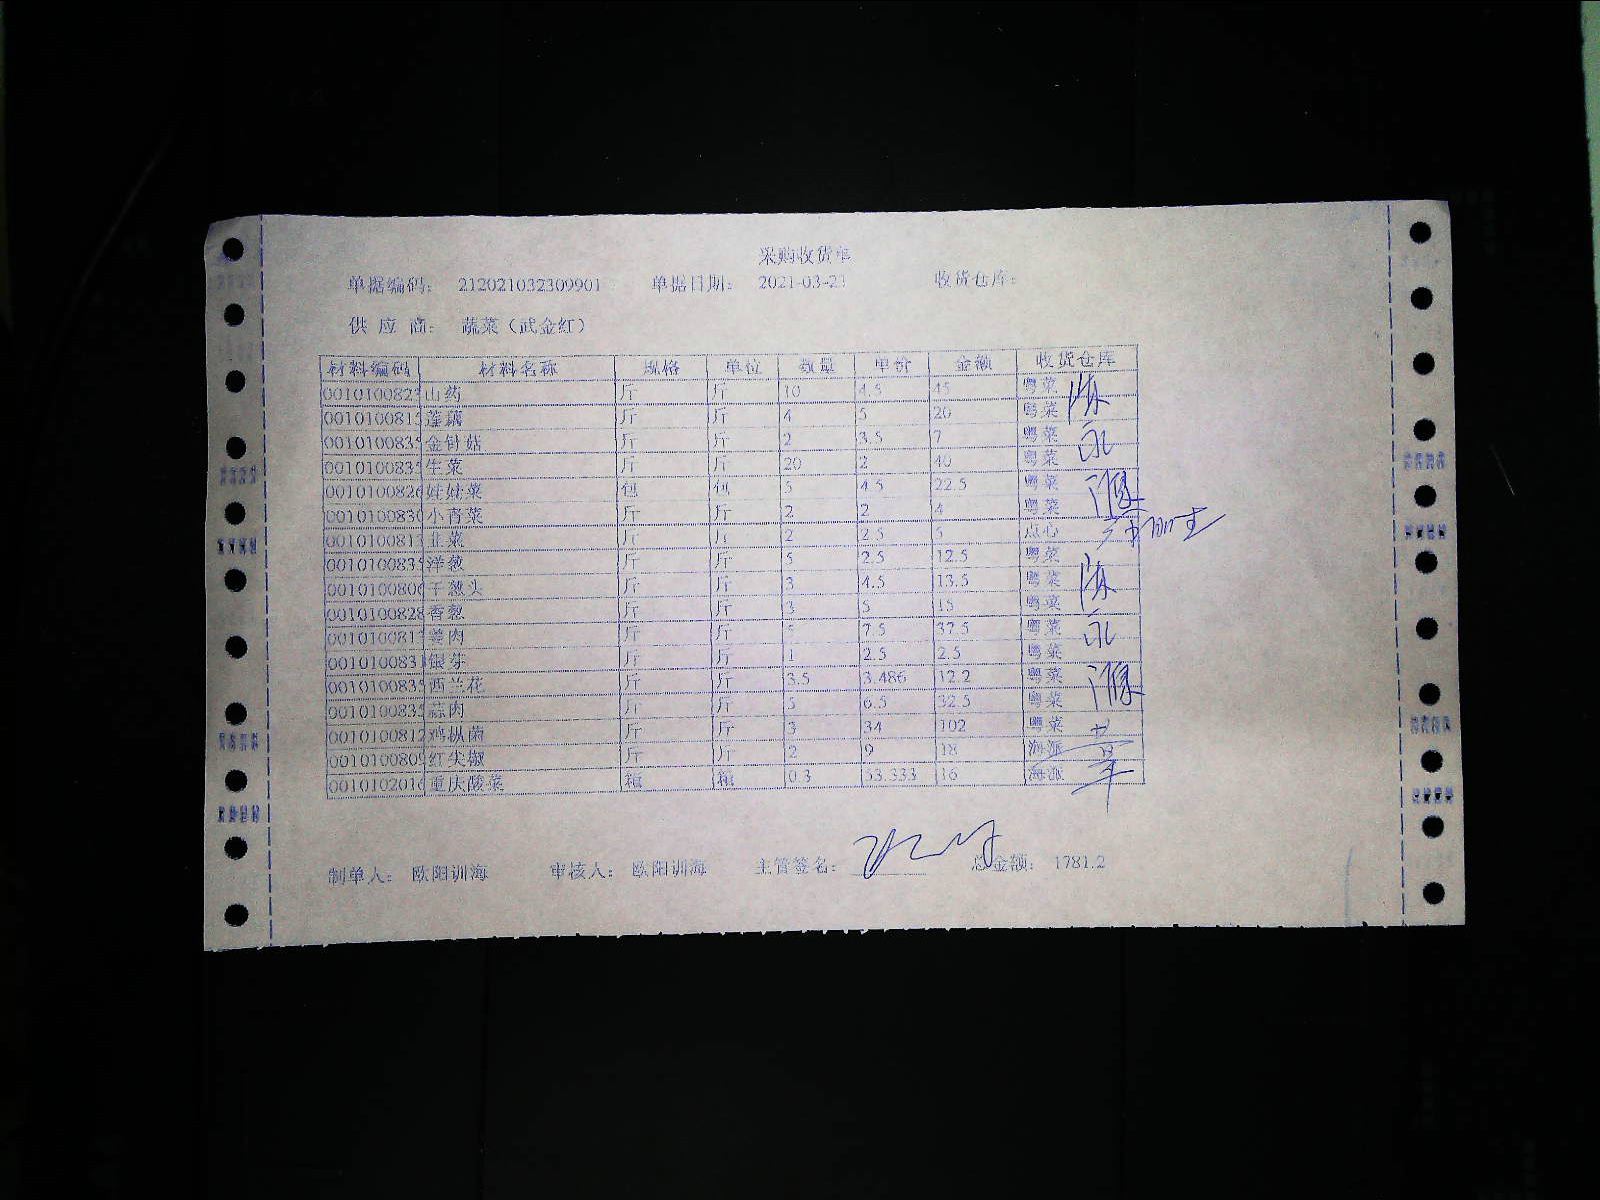 采购收货单
单据编码: 212021032309901 单据日期: 2021-03-23 收货仓库:
供 应 商: 蔬菜（武金红）
材料编码 材料名称 规格 单位 数量 单价 金额 收货仓库
001010082 山药 斤 斤 10 4.5 45 粤菜
001010081 莲藕 斤 斤 4 5 20 粤菜
001010083 金针菇 斤 斤 2 3.5 7 粤菜
001010083 生菜 斤 斤 20 2 40 粤菜
001010082 娃娃菜 包 包 5 4.5 22.5 粤菜
001010083 小青菜 斤 斤 2 2 4 粤菜
001010081 韭菜 斤 斤 2 2.5 5 点心
001010083 洋葱 斤 斤 5 2.5 12.5 粤菜
001010080 干葱头 斤 斤 3 4.5 13.5 粤菜
001010082 香葱 斤 斤 3 5 15 粤菜
001010081 姜肉 斤 斤 5 7.5 37.5 粤菜
001010083 银芽 斤 斤 1 2.5 2.5 粤菜
001010083 西兰花 斤 斤 3.5 3.486 12.2 粤菜
001010083 蒜肉 斤 斤 5 6.5 32.5 粤菜
001010081 鸡枞菌 斤 斤 3 34 102 粤菜
001010080 红尖椒 斤 斤 2 9 18 海派
001010201 重庆酸菜 箱 箱 0.3 53.333 16 海派
制单人: 欧阳训海 审核人: 欧阳训海 主管签名: 总金额: 1781.2